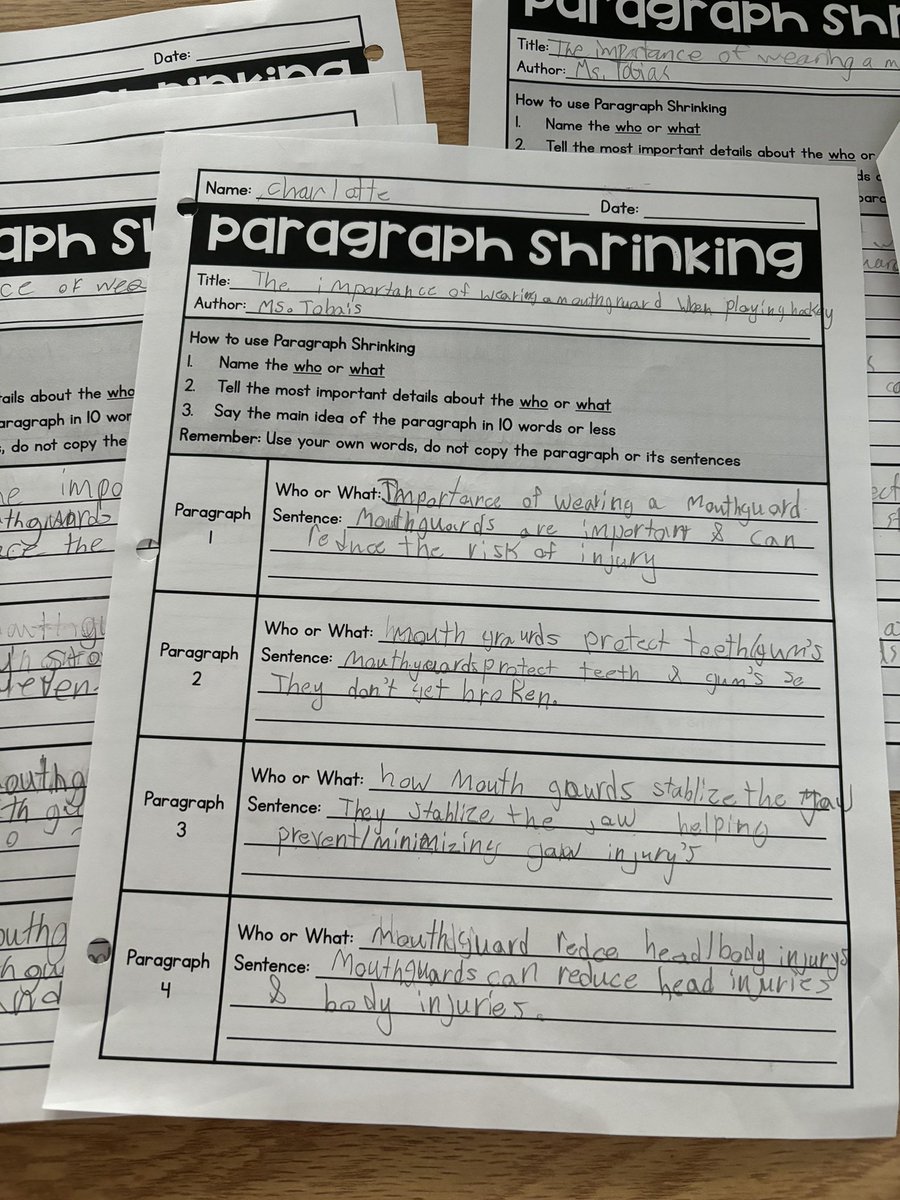 Date:
Shrinking
Paragraph Shri
Title: The importance of wearing a m
Author: Ms. Tobias
How to use Paragraph Shrinking
1. Name the who or what
2. Tell the most important details about the who or
Name: Charlotte Date:
Paragraph Shrinking
Title: The importance of wearing a mouthguard when playing hockey
Author: Ms. Tobais
How to use Paragraph Shrinking
1. Name the who or what
2. Tell the most important details about the who or what
3. Say the main idea of the paragraph in 10 words or less
Remember: Use your own words, do not copy the paragraph or its sentences
Paragraph 1
Who or What: Importance of wearing a Mouthguard
Sentence: Mouthguards are important & can
reduce the risk of injury
Paragraph 2
Who or What: mouth grards protect teeth/gum's
Sentence: Mouthguards protect teeth & gum's so
They don't get broken.
Paragraph 3
Who or What: how Mouth gaurds stablize the
Sentence: They stablize the jaw helping
prevent/minimizing gaw injury's
Paragraph 4
Who or What: Mouth guard redce head/body injurys
Sentence: Mouthguards can reduce head injuries
& body injuries.
aph Sh
ce of wea
tails about the who
aragraph in 10 wor
s, do not copy the